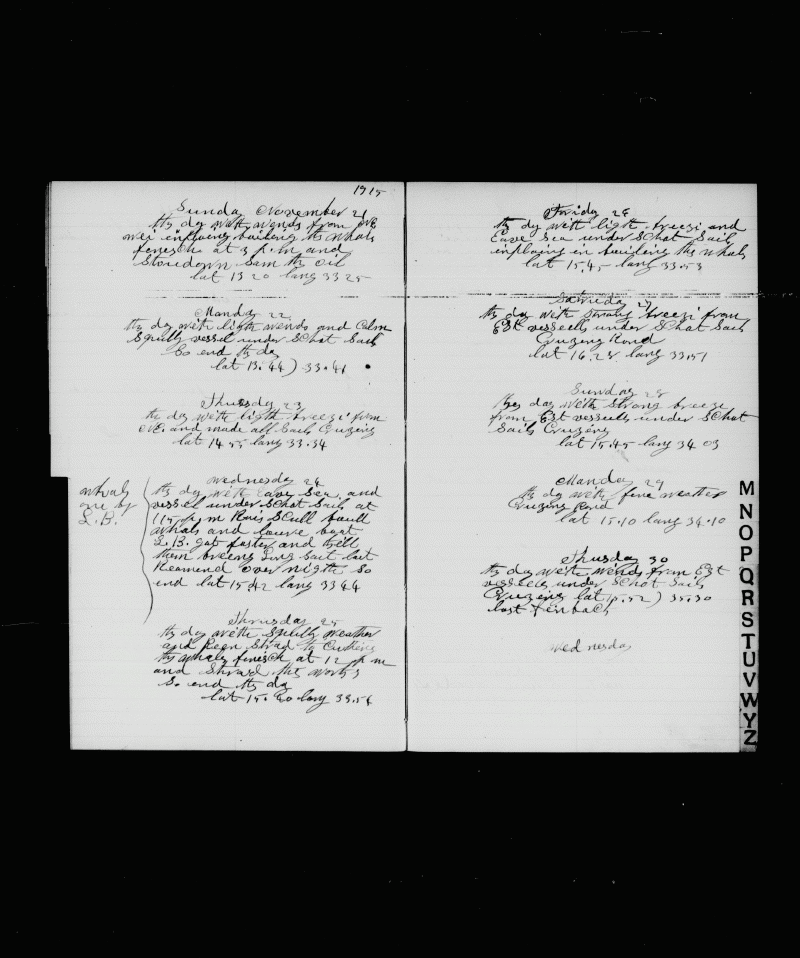 1915
Sunday November 21
th day with wends from NE
wee employeng boileng th whals
fenesch at 3 p.m and
Stowdown Sam th oil
lat 13 20 lang 33 25
Manday 22
th day with light wends and Calm
Squlty vessel under SChot Sails
So end th day
lat 13.44) 33.41
Thusday 23
th day with ligth breezi from
NE. and made all Sails Cruzeng
lat 14 55 lang 33.34
Wednesday 24
th day with eave Sea. and
vessel under SChot Sails at
1 15 p.m Rais SCull
whals and louve boat
L.B. got faster and kill
them breeng Long Sait but
Reamend over nigth So
end lat 15.42 lang 33 44
whals
one by
L.B.
Thrusday 25
th day with Squlty weather
and been Strad to Cutteng
th whals finesch at 12 p m
and th works
So end th day
lat 15.20 lang 33.51
Friday 26
th day with ligth breezi and
Eave Sea under SChot Sails
employeng in building th whals
lat 15.45 lang 33.53
Saturday 27
th day with strong breezi from
ESt vessels under SChot Sails
Cruzeng Rond
lat 16.28 lang 33.51
Sunday 28
they day with Strong breezi
from ESt vessels under SChot
Sails Cruzeng
lat 15.45 lang 34 03
Manday 29
th day with fine weather
Cruzeng Rond
lat 15.10 lang 34.10
Thusday 30
th day with wends from ESt
vessells under SChot Sails
Cruzeng lat 15.52) 35.30
lost
Wednesday
M
N
O
P
Q
R
S
T
U
V
W
Y
Z